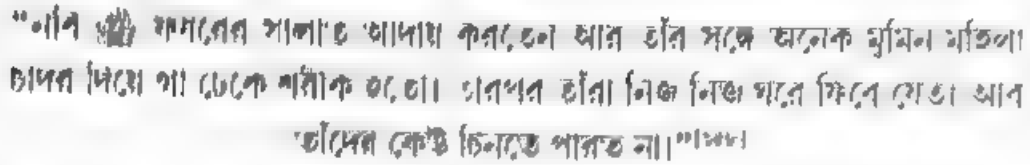 "নবি ﷺ ফজরের সালাত আদায় করতেন আর তাঁর সঙ্গে অনেক মুমিন মহিলা
চাদর দিয়ে গা ঢেকে শরীক হতো। তারপর তাঁরা নিজ নিজ ঘরে ফিরে যেত। আর
তাঁদের কেউ চিনতে পারত না।"